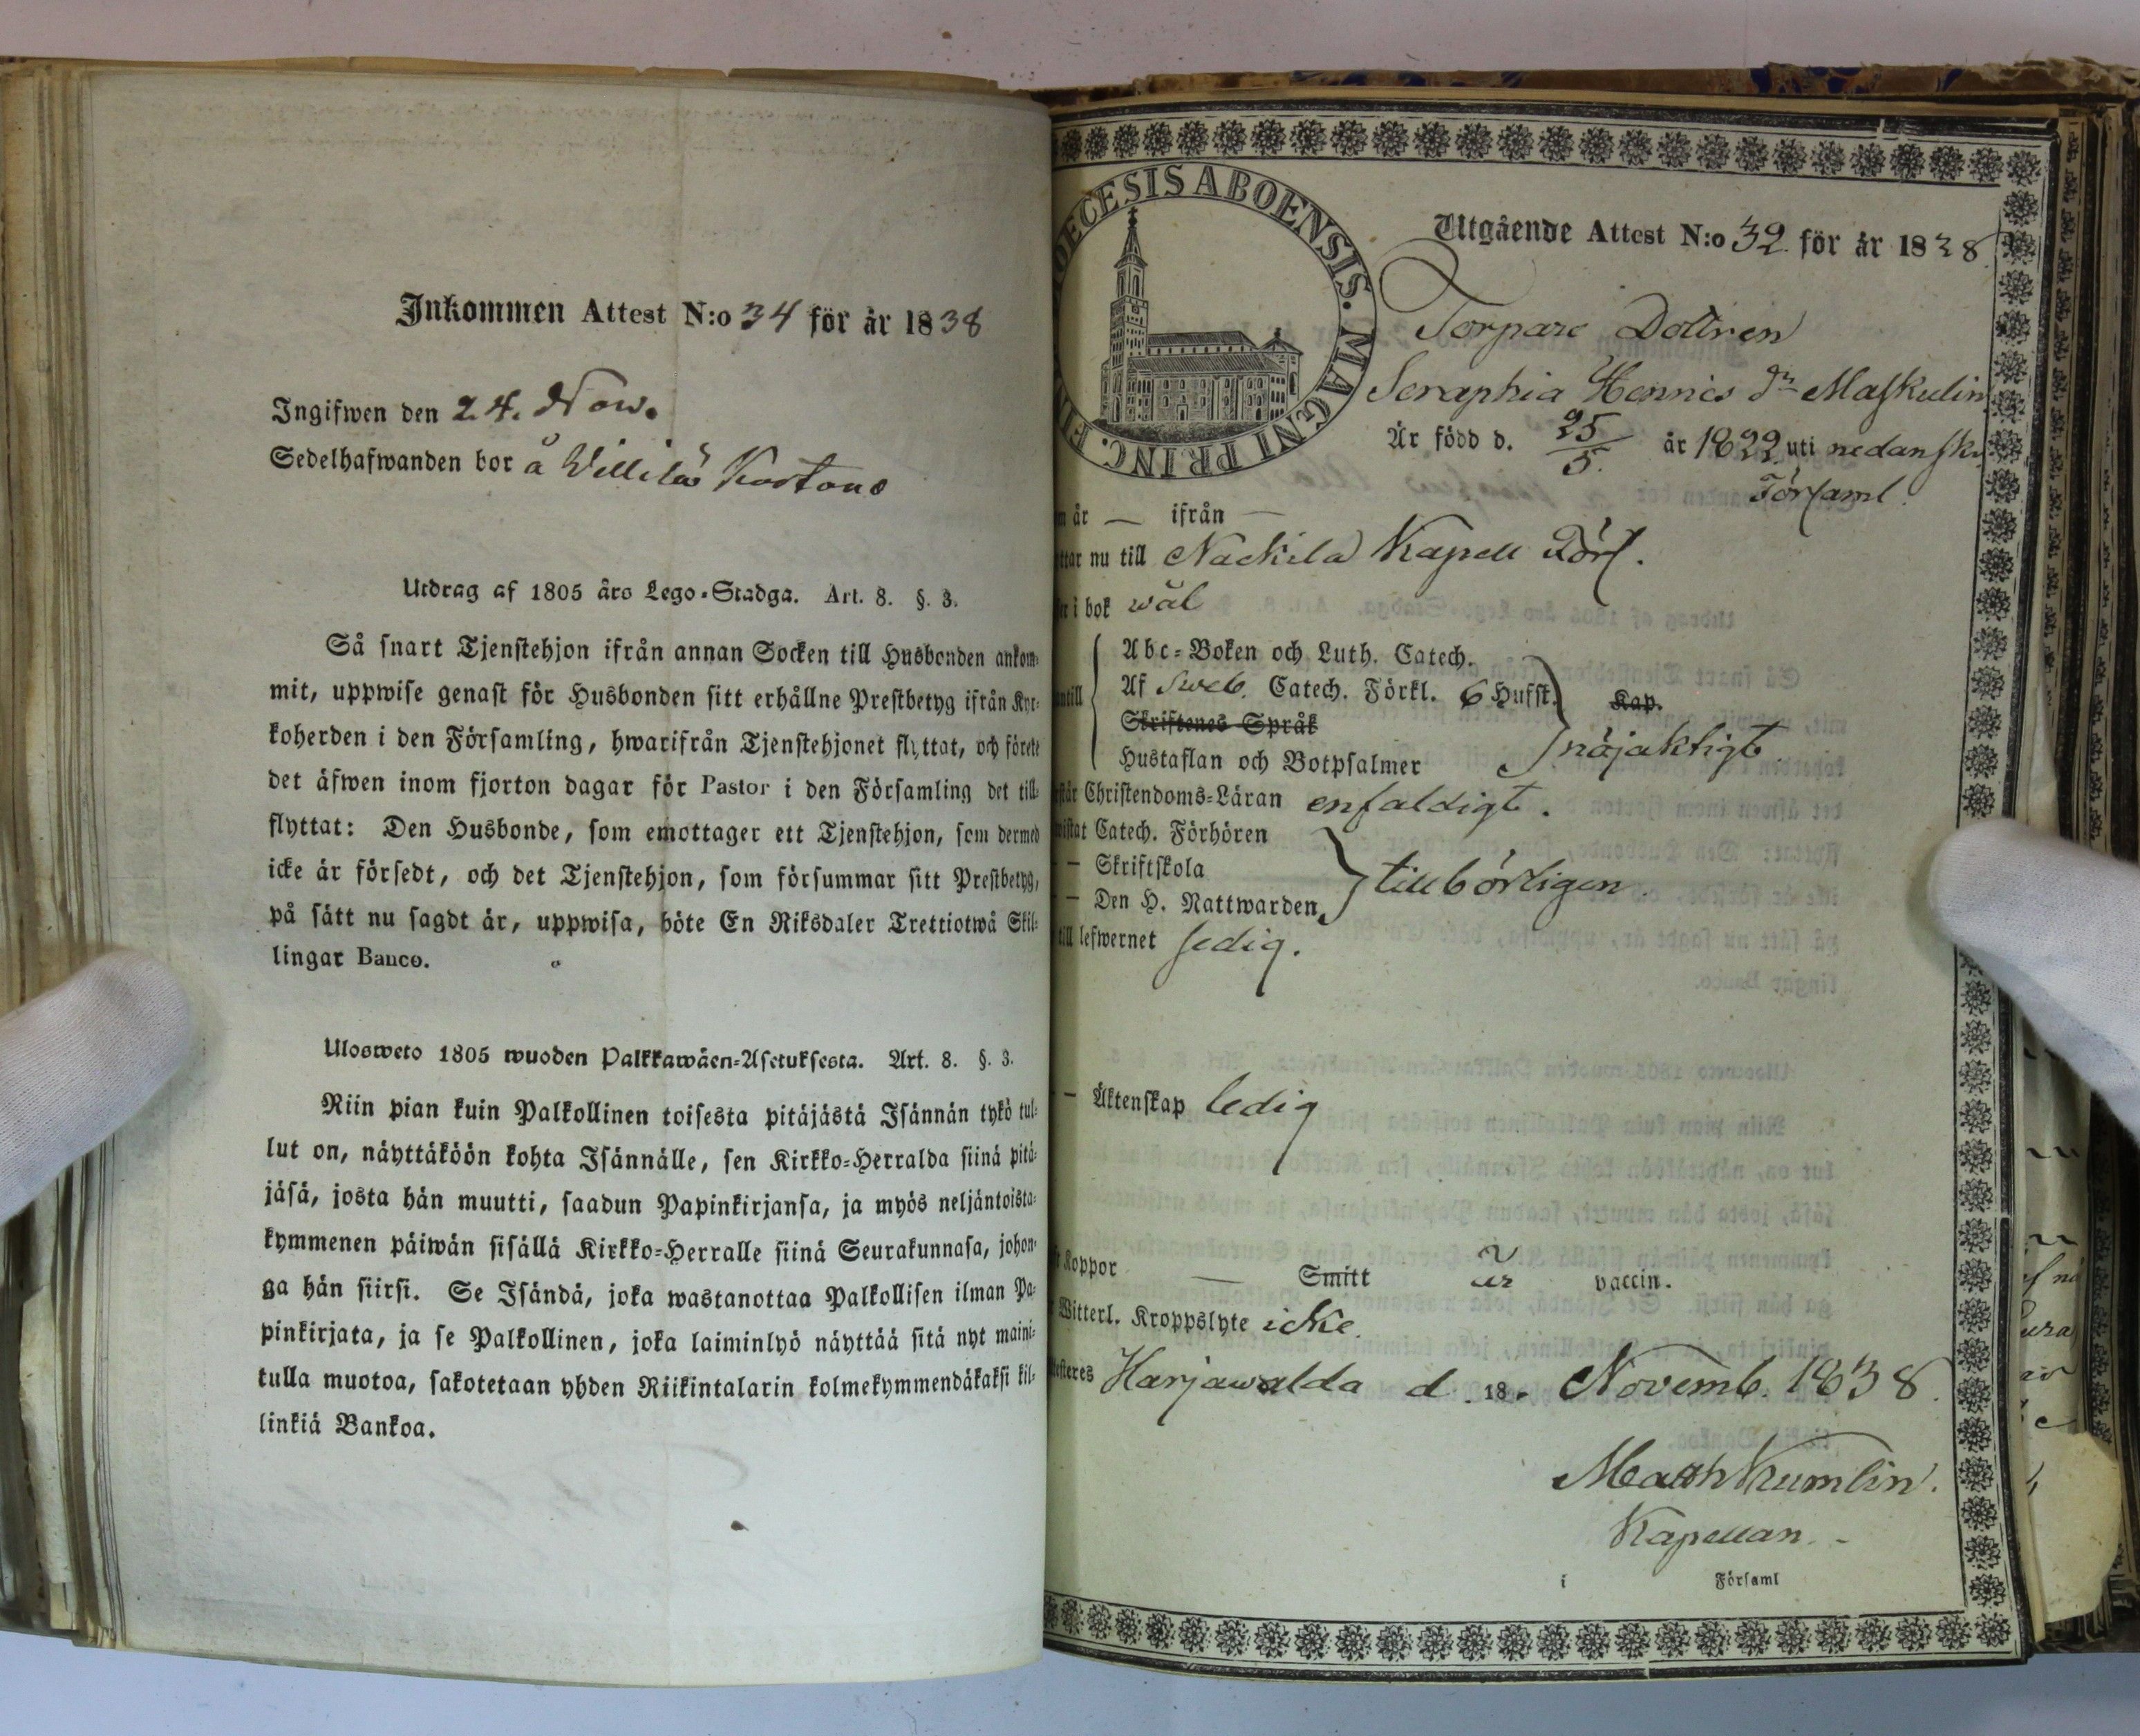 Inkommen Attest N:o 34 för år 1838
Ingifwen den 24. Now.
Sedelhafwanden bor å Willilä
Utdrag af 1805 års Lego-Stadga. Art. 8. §. 3.
Så snart Tjenstehjon ifrån annan Socken till Husbonden ankom-
mit, uppwise genast för Husbonden sitt erhållne Prestbetyg ifrån Kyr-
koherden i den Församling, hwarifrån Tjenstehjonet flyttat, och förete
det äfwen inom fjorton dagar för Pastor i den Församling det till-
flyttat: Den Husbonde, som emottager ett Tjenstehjon, som dermed
icke är försedt, och det Tjenstehjon, som försummar sitt Prestbetyg,
på sätt nu sagdt är, uppwisa, böte En Riksdaler Trettiotwå Skil-
lingar Banco.
Ulosweto 1805 wuoden Palkkawäen-Asetuksesta. Art. 8. §. 3.
Niin pian kuin Palkollinen toisesta pitäjästä Isännän tykö tul-
lut on, näyttäköön kohta Isännälle, sen Kirkko-Herralda siinä pitä-
jäsä, josta hän muutti, saadun Papinkirjansa, ja myös neljäntoista-
kymmenen päiwän sisällä Kirkko-Herralle siinä Seurakunnasa, johon-
ga hän siirsi. Se Isändä, joka wastanottaa Palkollisen ilman Pa-
pinkirjata, ja se Palkollinen, joka laiminlyö näyttää sitä nyt maini-
tulla muotoa, sakotetaan yhden Riikintalarin kolmekymmendäkaksi kil-
linkiä Bankoa.
DIOECESIS ABOENSIS. MAGNI PRINC. FIN
Utgående Attest N:o 32 för år 1838
Torpare Dottren
Seraphia Hennics dr Maskulin
Är född d. 25/5. år 1822 uti nedanskr
Församl.
år — ifrån —
ttar nu till Nackila Kapell Förs.
er i bok wäl
Abc-Boken och Luth. Catech.
ntill Af Sweb. Catech. Förkl. 6 Hufst. Kap.
Skriftenes Språk
Hustaflan och Botpsalmer nöjaktigt
står Christendoms-Läran enfaldigt.
wistat Catech. Förhören
— Skriftskola
— Den H. Nattwarden tillbörligen.
till lefwernet sedig.
— Äktenskap ledig
Koppor — Smitt är vaccin.
Witterl. Kroppslyte icke.
testeres Harjawalda d. 18. Novemb. 1838.
Math Kumlin.
Kapellan.
i Församl